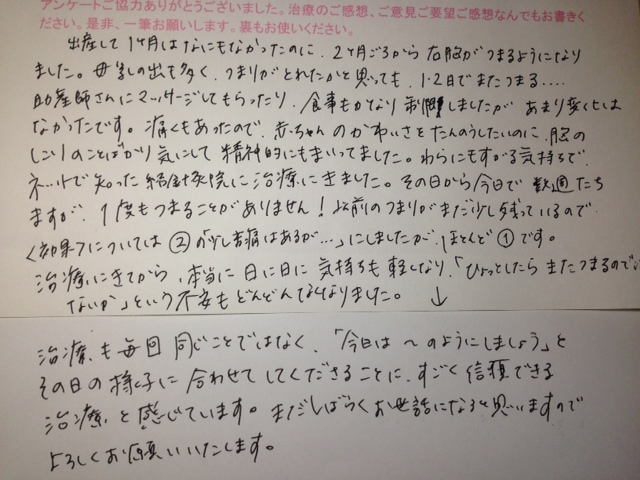 アンケートご協力ありがとうございました。治療のご感想、ご意見ご要望ご感想なんでもお書きく
ださい。是非、一筆お願いします。裏もお使いください。
出産して1ヶ月はなにもなかったのに、2ヶ月ごろから右胸がつまるようになり
ました。母乳の出も多く、つまりがとれたかと思っても、1・2日でまたつまる‥‥
助産師さんにマッサージしてもらったり、食事もかなり制限しましたが あまり変化は
なかったです。痛くもあったので、赤ちゃんのかわいさをたんのうしたいのに、胸の
しこりのことばかり気にして精神的にもまいってました。わらにもすがる気持ちで、
ネットで知った 鍼灸院に治療にきました。その日から今日で 数週たち
ますが、1度もつまることがありません!以前のつまりがまだ少し残っているので
〈効果〉については②「少し苦痛はあるが…」にしましたが、ほとんど①です。
治療にきてから、本当に日に日に気持ちも軽くなり、「ひょっとしたらまたつまるのでは
ないか」という不安もどんどんなくなりました。↓
治療も毎回同じことではなく、「今日は〜のようにしましょう」と
その日の様子に合わせてしてくださることに、すごく信頼できる
治療、と感じています。まだしばらくお世話になると思いますので
よろしくお願いいたします。